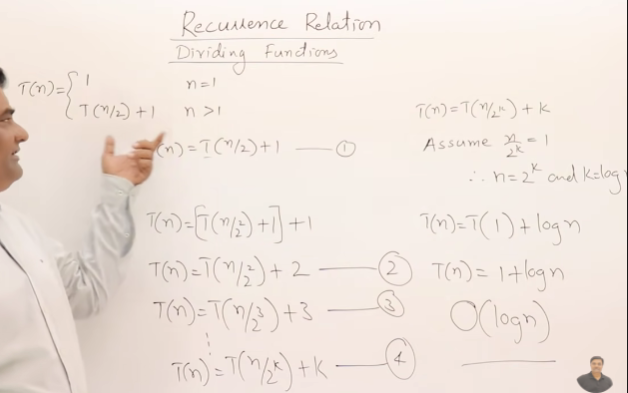 Recurrence Relation
Dividing Functions
T(n)={ 1 n=1
T(n/2)+1 n>1
(n)=T(n/2)+1 —— ①
T(n)=[T(n/2²)+1]+1
T(n)=T(n/2²)+2 —— ②
T(n)=T(n/2³)+3 —— ③
⋮
T(n)=T(n/2ᵏ)+k —— ④
T(n)=T(n/2ᵏ)+k
Assume n/2ᵏ=1
∴ n=2ᵏ and k=log
T(n)=T(1)+logn
T(n)=1+logn
O(logn)